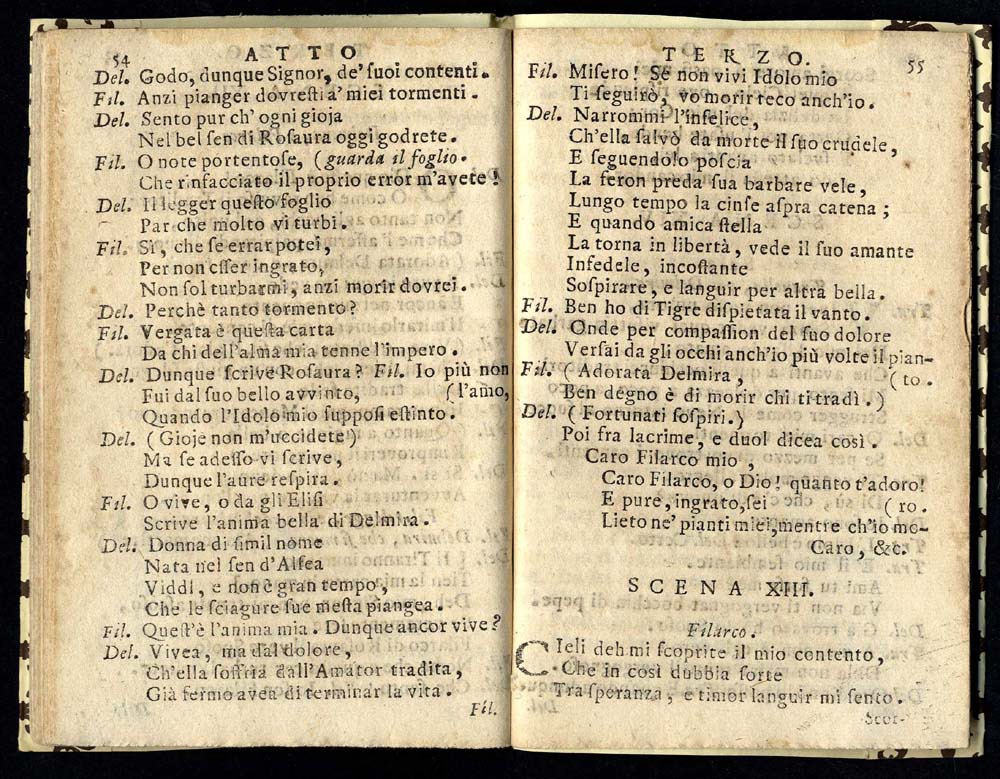 54 ATTO
Del. Godo, dunque Signor, de' ſuoi contenti.
Fil. Anzi pianger dovreſti a' miei tormenti.
Del. Sento pur ch' ogni gioja
Nel bel ſen di Roſaura oggi godrete.
Fil. O note portentoſe, (guarda il foglio.
Che rinfacciato il proprio error m'avete!
Del. Il legger queſto foglio
Par che molto vi turbi.
Fil. Sì, che ſe errar potei,
Per non eſſer ingrato,
Non ſol turbarmi, anzi morir dovrei.
Del. Perchè tanto tormento?
Fil. Vergata è queſta carta
Da chi dell'alma mia tenne l'impero.
Del. Dunque ſcrive Roſaura? Fil. Io più non
Fui dal ſuo bello avvinto, (l'amo,
Quando l'Idolo mio ſuppoſi eſtinto.
Del. (Gioje non m'uccidete)
Ma ſe adeſſo vi ſcrive,
Dunque l'aure reſpira.
Fil. O vive, o da gli Eliſi
Scrive l'anima bella di Delmira.
Del. Donna di ſimil nome
Nata nel ſen d'Alfea
Viddi, e non è gran tempo,
Che le ſciagure ſue meſta piangea.
Fil. Queſt'è l'anima mia. Dunque ancor vive?
Del. Vivea, ma dal dolore,
Ch'ella ſoffria dall'Amator tradita,
Già fermo avea di terminar la vita.
Fil.
TERZO. 55
Fil. Miſero! Se non vivi Idolo mio
Ti ſeguirò, vo morir teco anch'io.
Del. Narrommi l'infelice,
Ch'ella ſalvò da morte il ſuo crudele,
E ſeguendolo poſcia
La feron preda ſua barbare vele,
Lungo tempo la cinſe aſpra catena;
E quando amica ſtella
La torna in libertà, vede il ſuo amante
Infedele, incoſtante
Soſpirare, e languir per altra bella.
Fil. Ben ho di Tigre diſpietata il vanto.
Del. Onde per compaſſion del ſuo dolore
Verſai da gli occhi anch'io più volte il pian-
Fil. (Adorata Delmira, (to.
Ben degno è di morir chi ti tradì.)
Del. (Fortunati ſoſpiri.)
Poi fra lacrime, e duol dicea così.
Caro Filarco mio,
Caro Filarco, o Dio! quanto t'adoro!
E pure, ingrato, ſei (ro.
Lieto ne' pianti miei, mentre ch'io mo-
Caro, &c.
SCENA XIII.
Filarco.
CIeli deh mi ſcoprite il mio contento,
Che in così dubbia ſorte
Tra ſperanza, e timor languir mi ſento.
Scor-